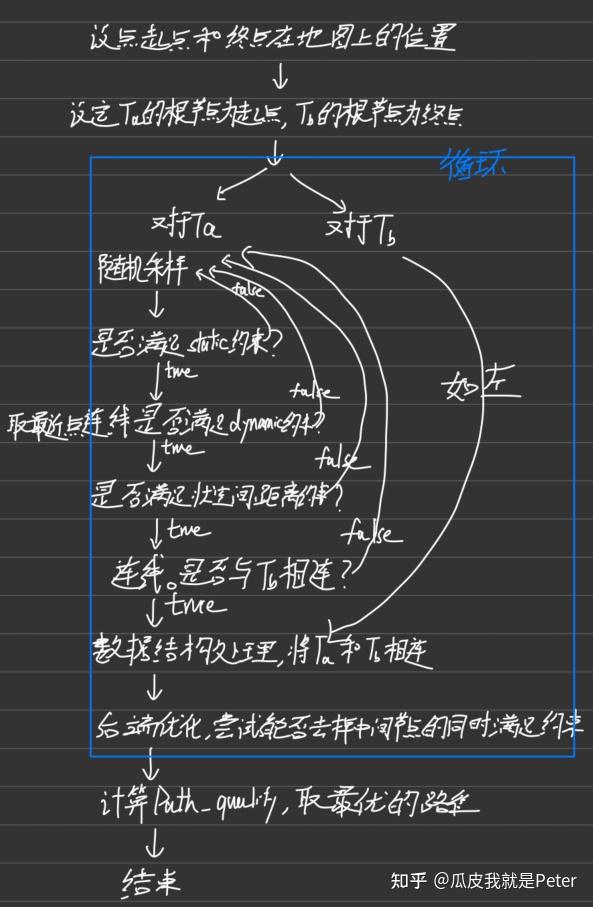 设点起点和终点在地图上的位置
设定Ta的根节点为起点, Tb的根节点为终点
循环
对于Ta
对于Tb
随机采样
false
是否满足static约束?
true
false
如左
取最近点连线是否满足dynamic约束?
true
false
是否满足状态间距离约束?
true
false
连线。是否与Tb相连?
true
数据结构处理,将Ta和Tb相连
后端优化,尝试能否去掉中间节点的同时满足约束
计算Path_quality,取最优的路径
结束
知乎 @瓜皮我就是Peter